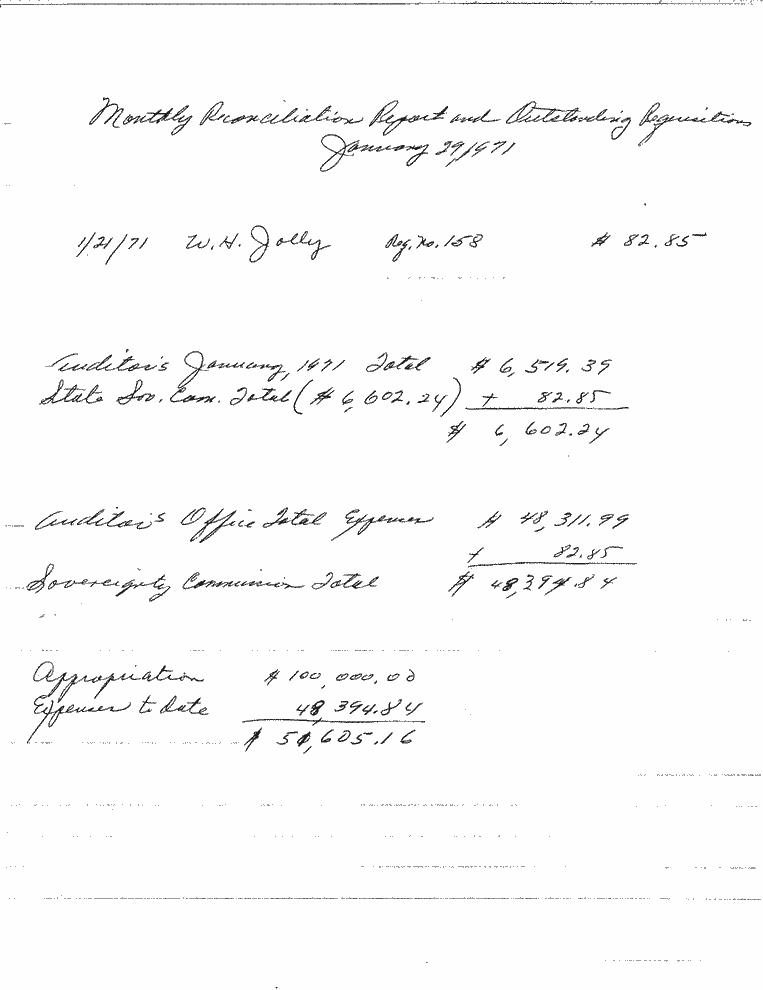 Monthly Reconciliation Report and Outstanding Requisitions
January 29, 1971
1/21/71 W. H. Jolly Req. No. 158 $ 82.85
Auditor's January, 1971 Total $ 6,519.39
State Sov. Com. Total ($ 6,602.24) + 82.85
$ 6,602.24
Auditor's Office Total Expenses $ 48,311.99
+ 82.85
Sovereignty Commission Total $ 48,394.84
Appropriation $ 100,000.00
Expenses to date 48,394.84
$ 51,605.16